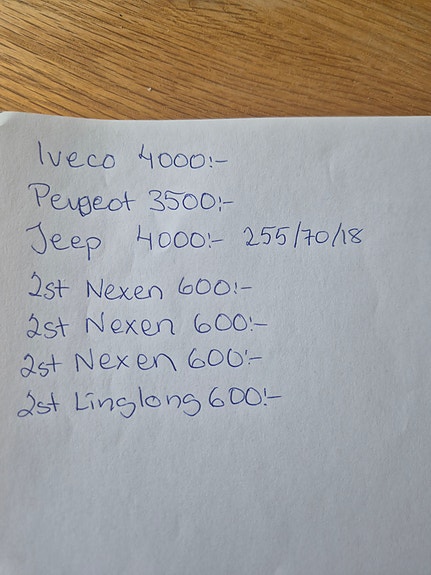 Iveco 4000:-
Peugeot 3500:-
Jeep 4000:- 255/70/18
2st Nexen 600:-
2st Nexen 600:-
2st Nexen 600:-
2st Linglong 600:-